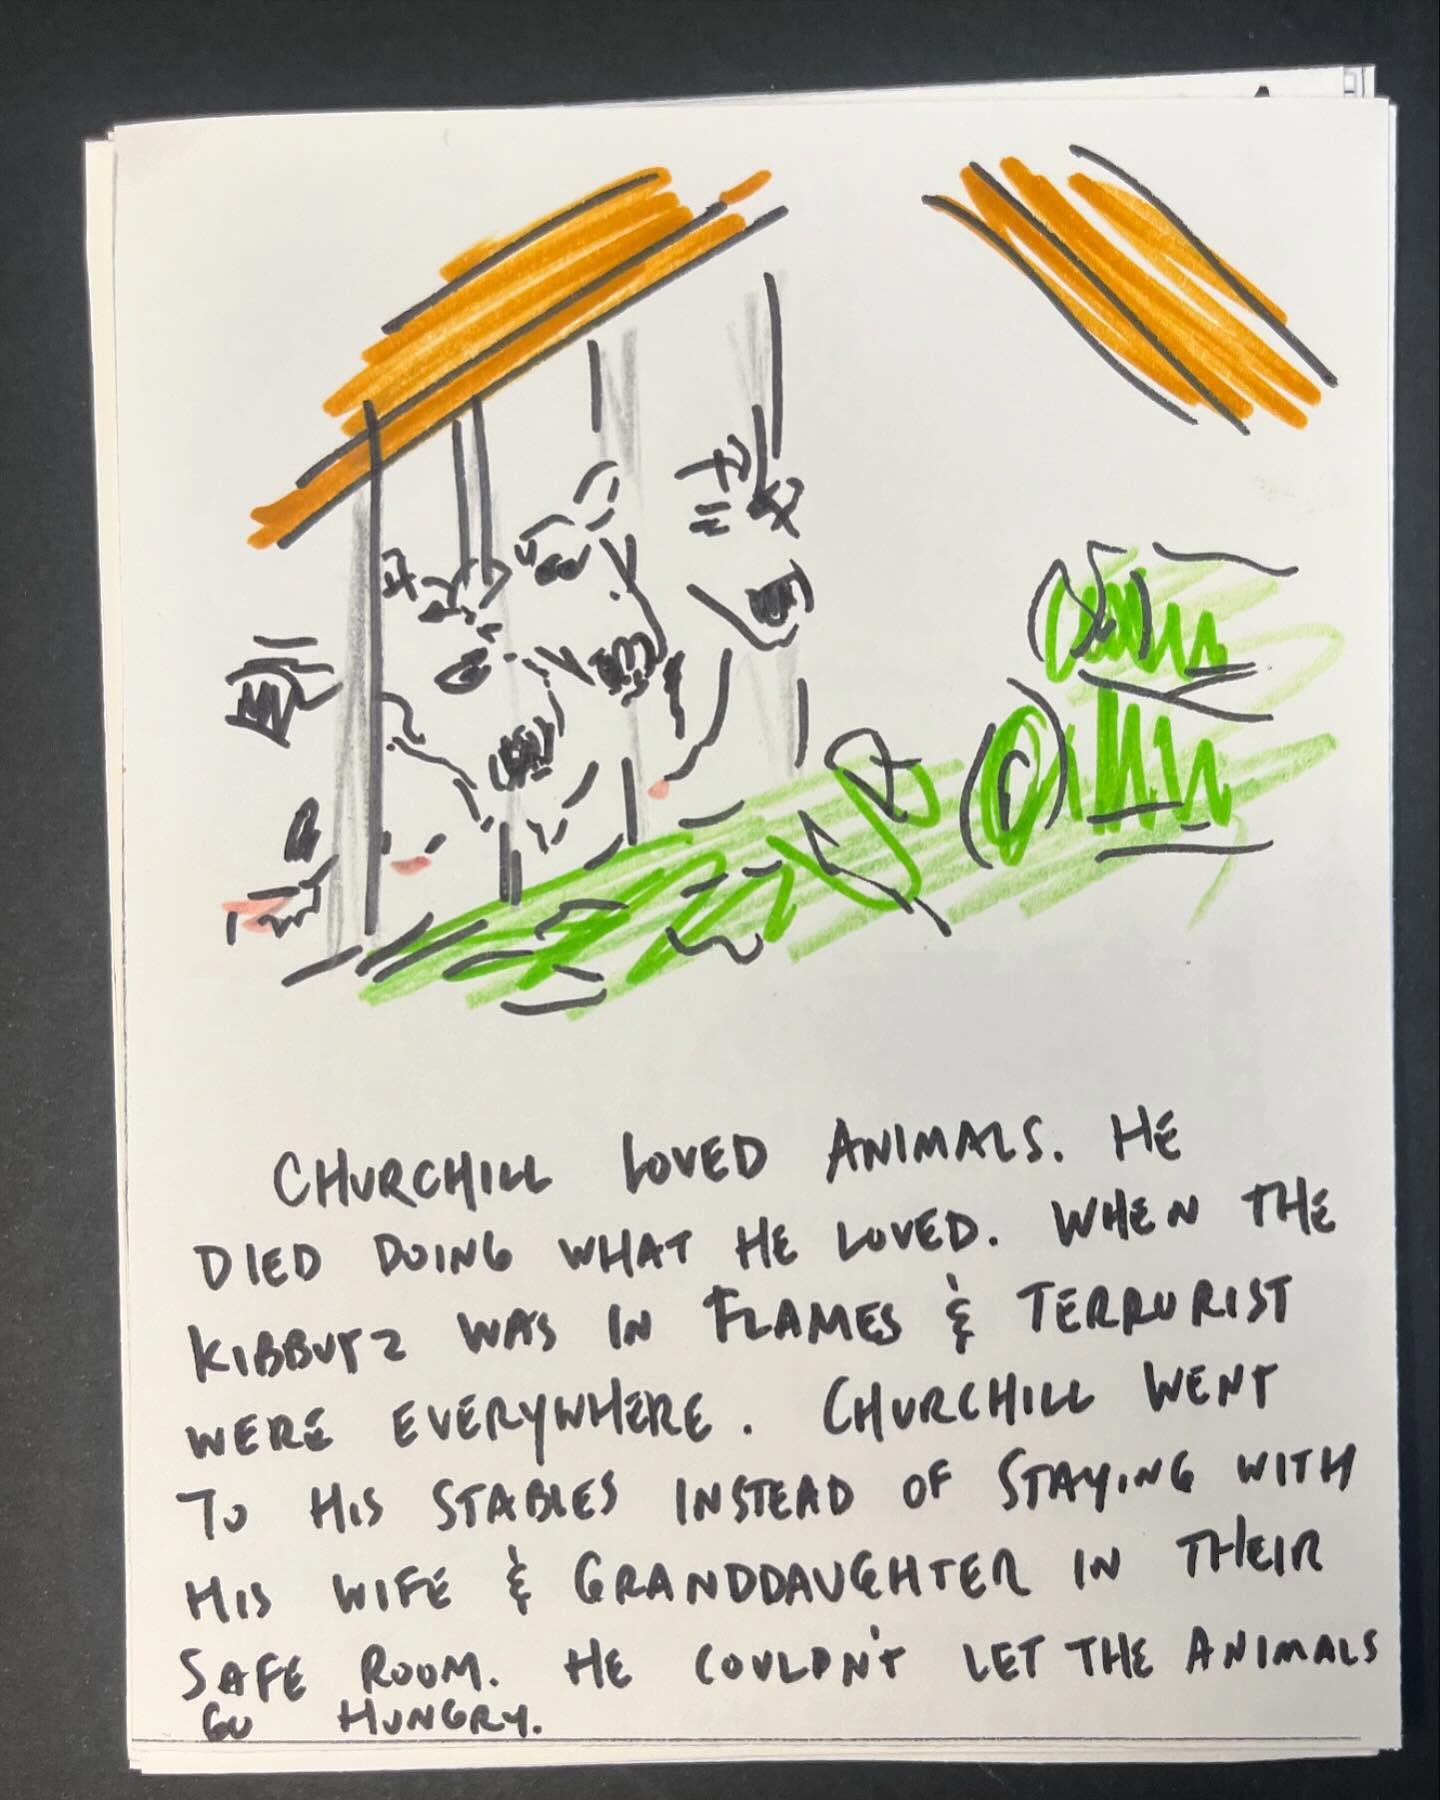 CHURCHILL LOVED ANIMALS. HE
DIED DOING WHAT HE LOVED. WHEN THE
KIBBUTZ WAS IN FLAMES & TERRORIST
WERE EVERYWHERE. CHURCHILL WENT
TO HIS STABLES INSTEAD OF STAYING WITH
HIS WIFE & GRANDDAUGHTER IN THEIR
SAFE ROOM. HE COULDN'T LET THE ANIMALS
GO HUNGRY.